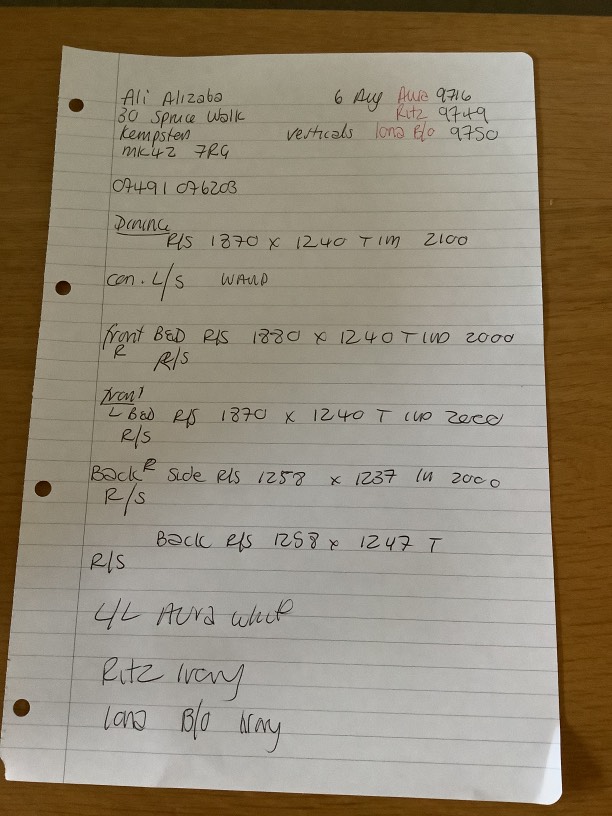 Ali Alizaba 6 Aug Aura 9716
30 Spruce Walk Ritz 9749
Kempston verticals Iona B/o 9750
MK42 7RG
07491 076203
Dining
R/S 1870 x 1240 T IM 2100
con. L/S WAND
front BED R/S 1880 x 1240 T 2000
R R/S
front
L BED R/S 1870 x 1240 T 2000
R/S
Back R side R/S 1258 x 1237 IN 2000
R/S
Back R/S 1258 x 1247 T
R/S
L/L AURA White
Ritz Ivory
Iona B/o Ivory